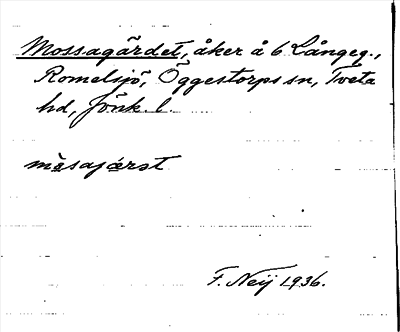 Mossagärdet, åker å 6 Långeg.,
Romelsjö, Öggestorps sn, Tveta
hd, Jönk. l.
mòsajæ̀rət
F. Neij 1936.